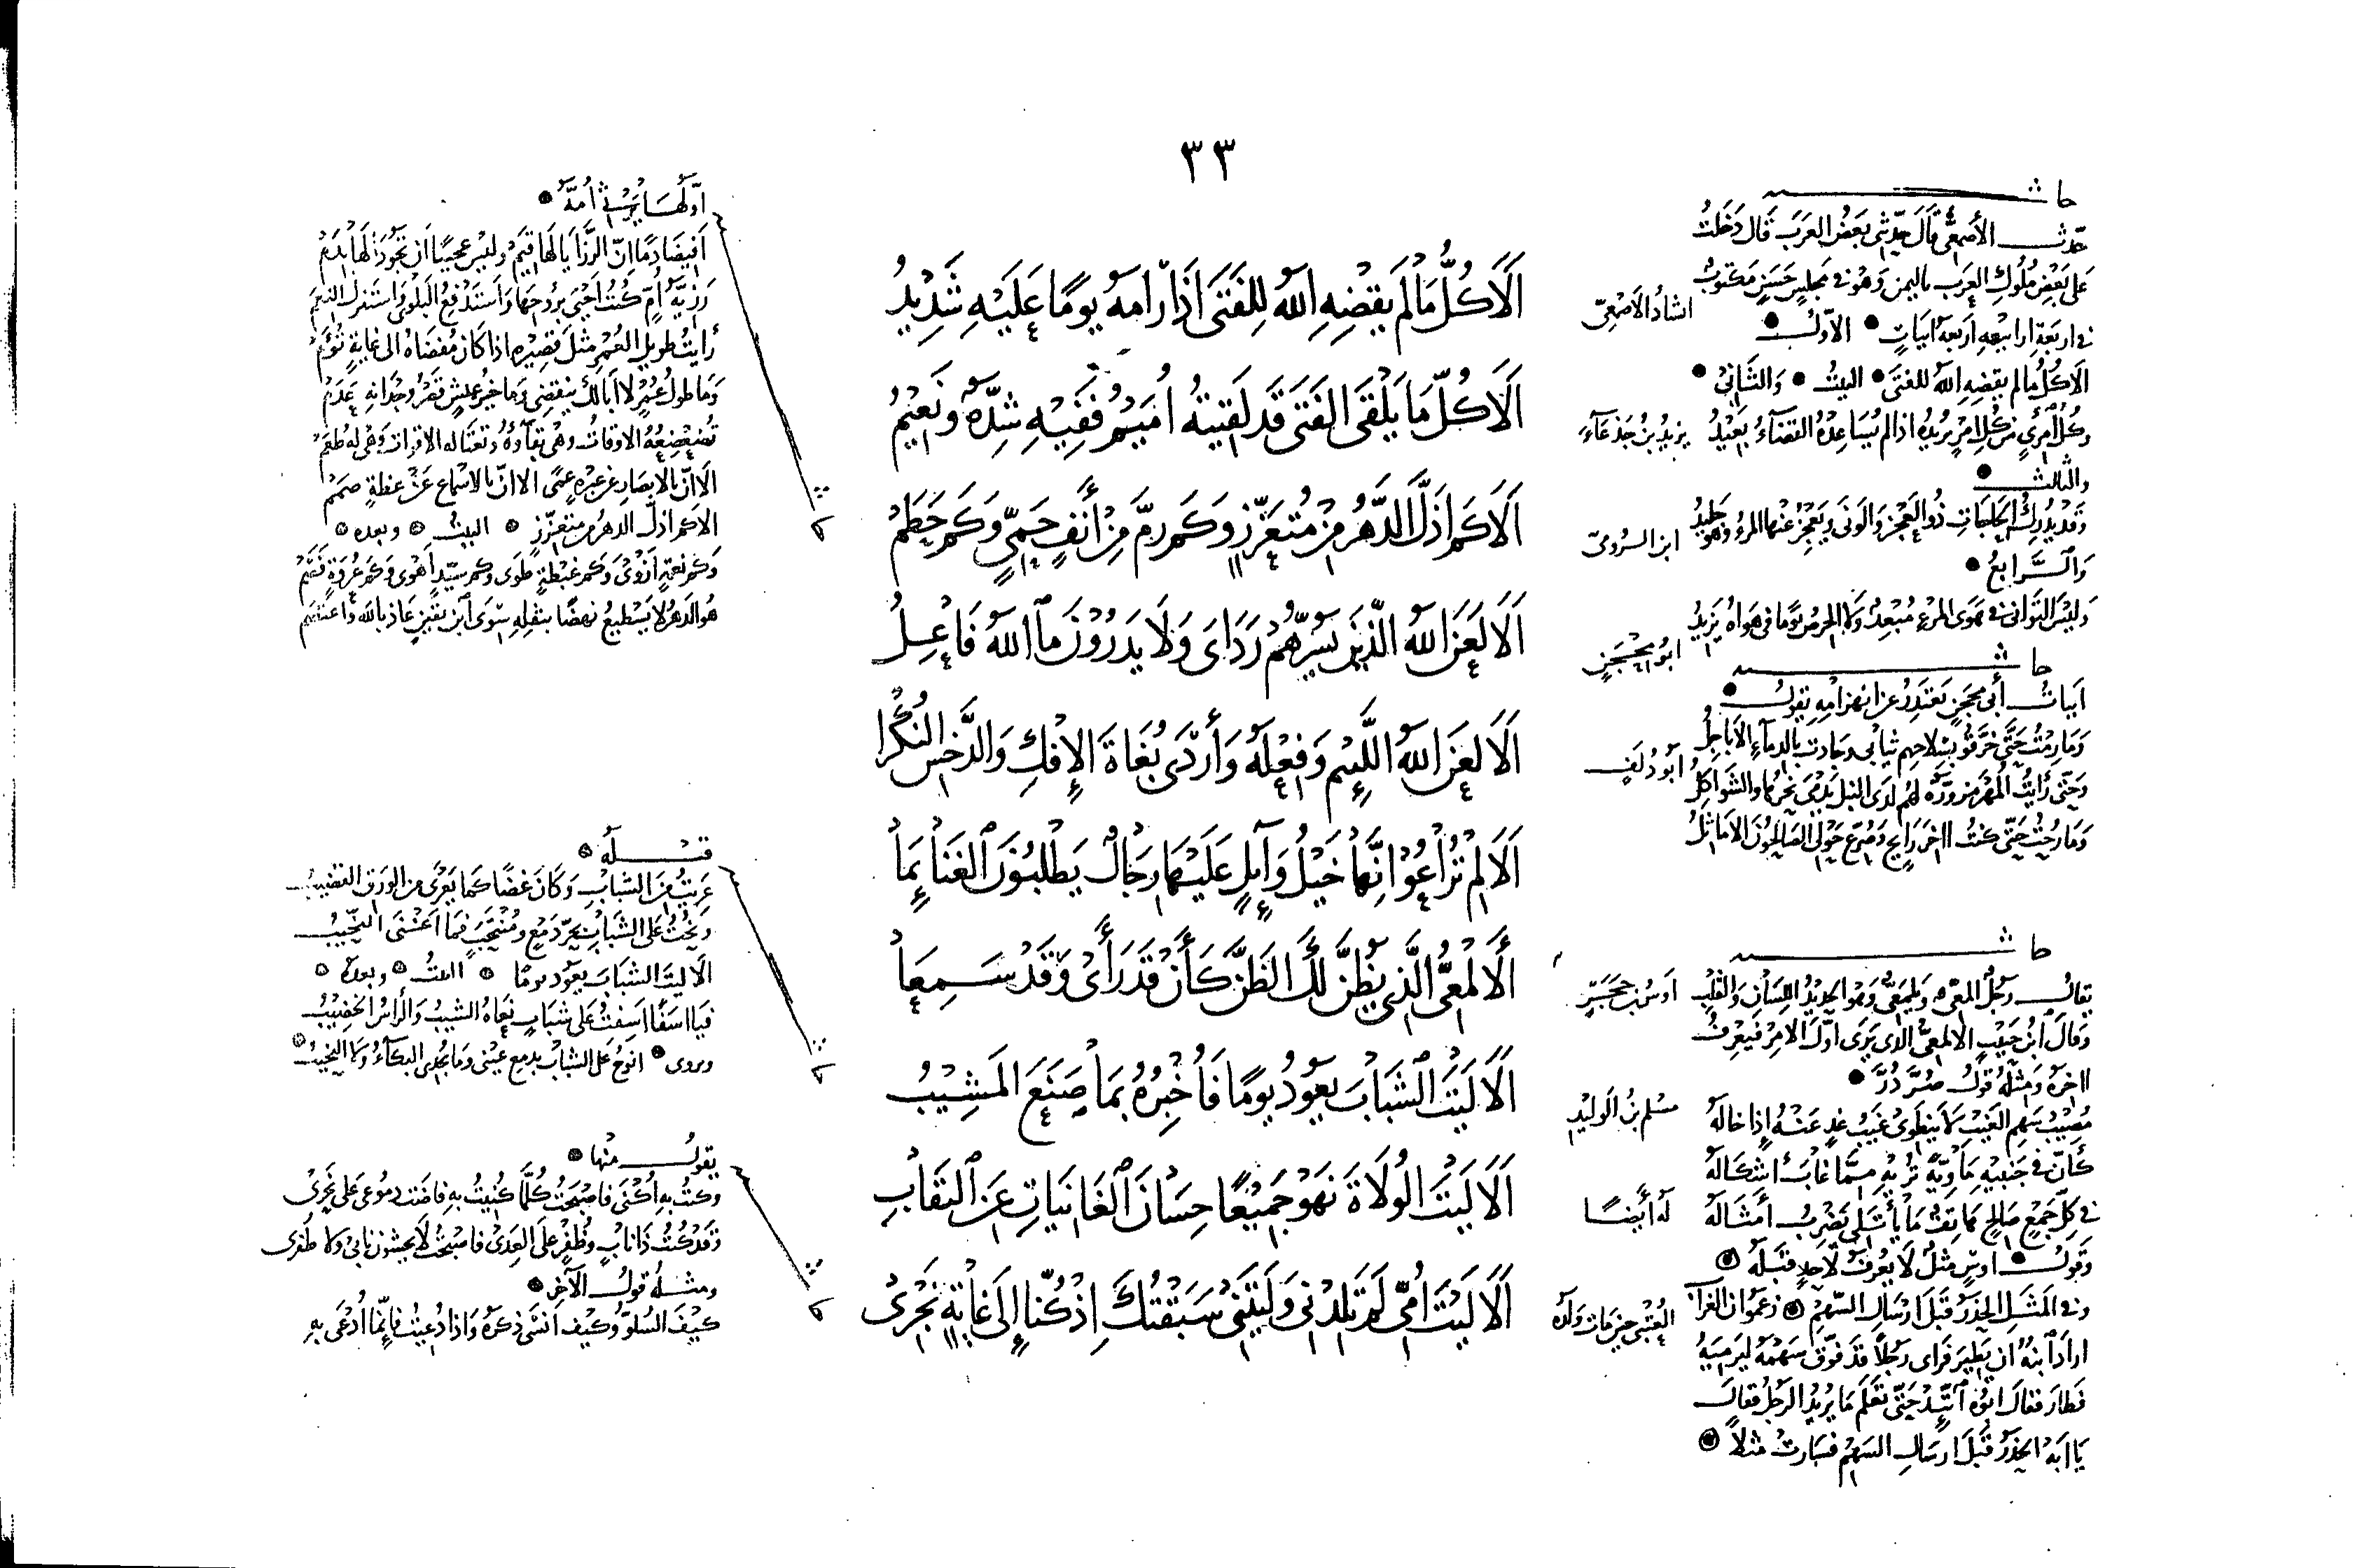 ٣٣
حاشية
حدث الأصمعي قال حدثني بعض العرب قال دخلت
على بعض ملوك العرب باليمن وهو في مجلس حسن مكتوب
في اربعة ارابيعه اربعة ابيات الأول
الا كل ما لم يقضه الله للفتى البيت والثاني
وكل امرئ من كل امر يريده اذا لم يساعده القضاء بعيد
والثالث
وقد يدرك الحاجات ذو العجز والونى ويعجز عنها المرء وهو جليد
والرابع
وليس التواني في هوى المرء مبعد ولا الحرص يوما في هواه يزيد
حاشية
ابيات أبي محجن يعتذر عن انهزامه يقول
وما رمت حتى خرقوا بسلاحهم ثيابي وجادت بالدماء الأباجل
وحتى رأيت المهر مزورة لهم لدى النبل يدمي نحرها والشواكل
وما رحت حتى كنت اخر رايح وصرع حولي الصالحون الاماثل
حاشية
يقال رجل المعي ويلمعي وهو الحديد اللسان والقلب
وقال ابن حبيب الالمعي الذي يرى اول الامر فيعرف
اخره ومثله قول صردر
مصيب سهم الغيب لا ينطوي غيب غد عنه إذا خاله
كأن في جنبيه ماوية تريه مما غاب أشكاله
في كل جمع صالح
وقول اوس مثل لا يعرف لأحد قبله
وفي المثل الحذر قبل ارسال السهم زعموا ان الغراب
اراد ابنه ان يطير فرأى رجلا قد فوق سهمه ليرميه
فطار فقال ابوه اتئد حتى تعلم ما يريد الرجل فقال
يا ابه الحذر قبل ارسال السهم فسارت مثلا
انشاد الأصمعي
يزيد بن جدعاء
ابن الرومي
ابو محجن
ابو دلف
اوس بن حجر
مسلم بن الوليد
له أيضا
العتبي حين مات ولده
ألا كل ما لم يقضه الله للفتى اذا رامه يوما عليه شديد
ألا كل ما يلقى الفتى قد لقيته اميم ففيه شدة ونعيم
ألا كم اذل الدهر من متعزز وكم زم من أنف حمي وكم خطم
ألا لعن الله الذين يسرهم رداي ولا يدرون ما الله فاعل
ألا لعن الله اللئيم وفعله وأردى بغاة الإفك والدخس النكرا
ألا لم تراعوا انها خيل وآئل عليها رجال يطلبون الغنائما
ألألمعي الذي يظن لك الظن كأن قد رأى وقد سمعا
ألا ليت الشباب يعود يوما فأخبره بما صنع المشيب
ألا ليت الولاة نهو جميعا حسان الغانيات عن النقاب
ألا ليت امي لم تلدني وليتني سبقتك إذ كنا إلى غاية نجري
اولها يرثي امه
افيضا دما ان الرزايا لها قيم وليس عجيبا ان تجودا لها بدم
رأيت طويل العمر مثل قصيره اذا كان مفضاه الى غاية تؤم
وما طول عمر لا أبا لك ينقضي وما خير عيش قصر وجدانه عدم
تضعضعه الاوقات وهي بقاؤه وتغتاله الاقوات وهي له طعم
الا ان بالابصار عن عبرة عمى الا ان بالاسماع عن عظة صمم
الا كم اذل الدهر من متعزز البيت وبعده
وكم نعمة أزوى وكم غبطة طوى وكم سيد أهوى وكم عروة فصم
قبله
عريت من الشباب وكان غضا كما يعرى من الورق القضيب
ونحت على الشباب بجرد مع ومنتحب فما اغنى النحيب
الا ليت الشباب يعود يوما البيت وبعده
فيا اسفا اسفت على شباب نعاه الشيب والرأس الخضيب
ويروى انوح على الشباب بدمع عيني وما يجدى البكاء ولا النحيب
يقول منها
وكنت به أكنى فاصبحت كلما كنيت به فاضت دموعي على نحري
وقد كنت ذا ناب وظفر على العدى فاصبحت لا يخشون نابي ولا ظفري
ومثله قول الآخر
كيف السلو وكيف انسى ذكره واذا دعيت فانما أدعى به